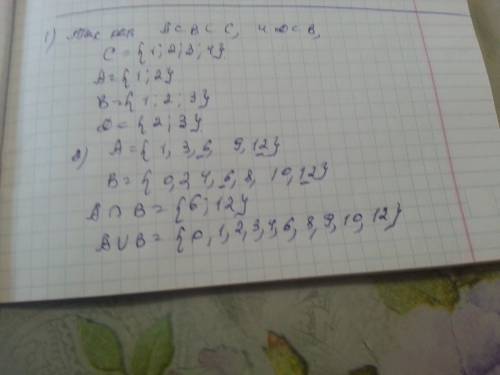 1) Так как A⊂B⊂C, и D⊂B,
C = {1; 2; 3; 4}
A = {1; 2}
B = {1; 2; 3}
D = {2; 3}
2) A = {1, 3, 6, 9, 12}
B = {0, 2 4, 6, 8, 10, 12}
A ∩ B = {6; 12}
A ∪ B = {0, 1, 2, 3, 4, 6, 8, 9, 10, 12}